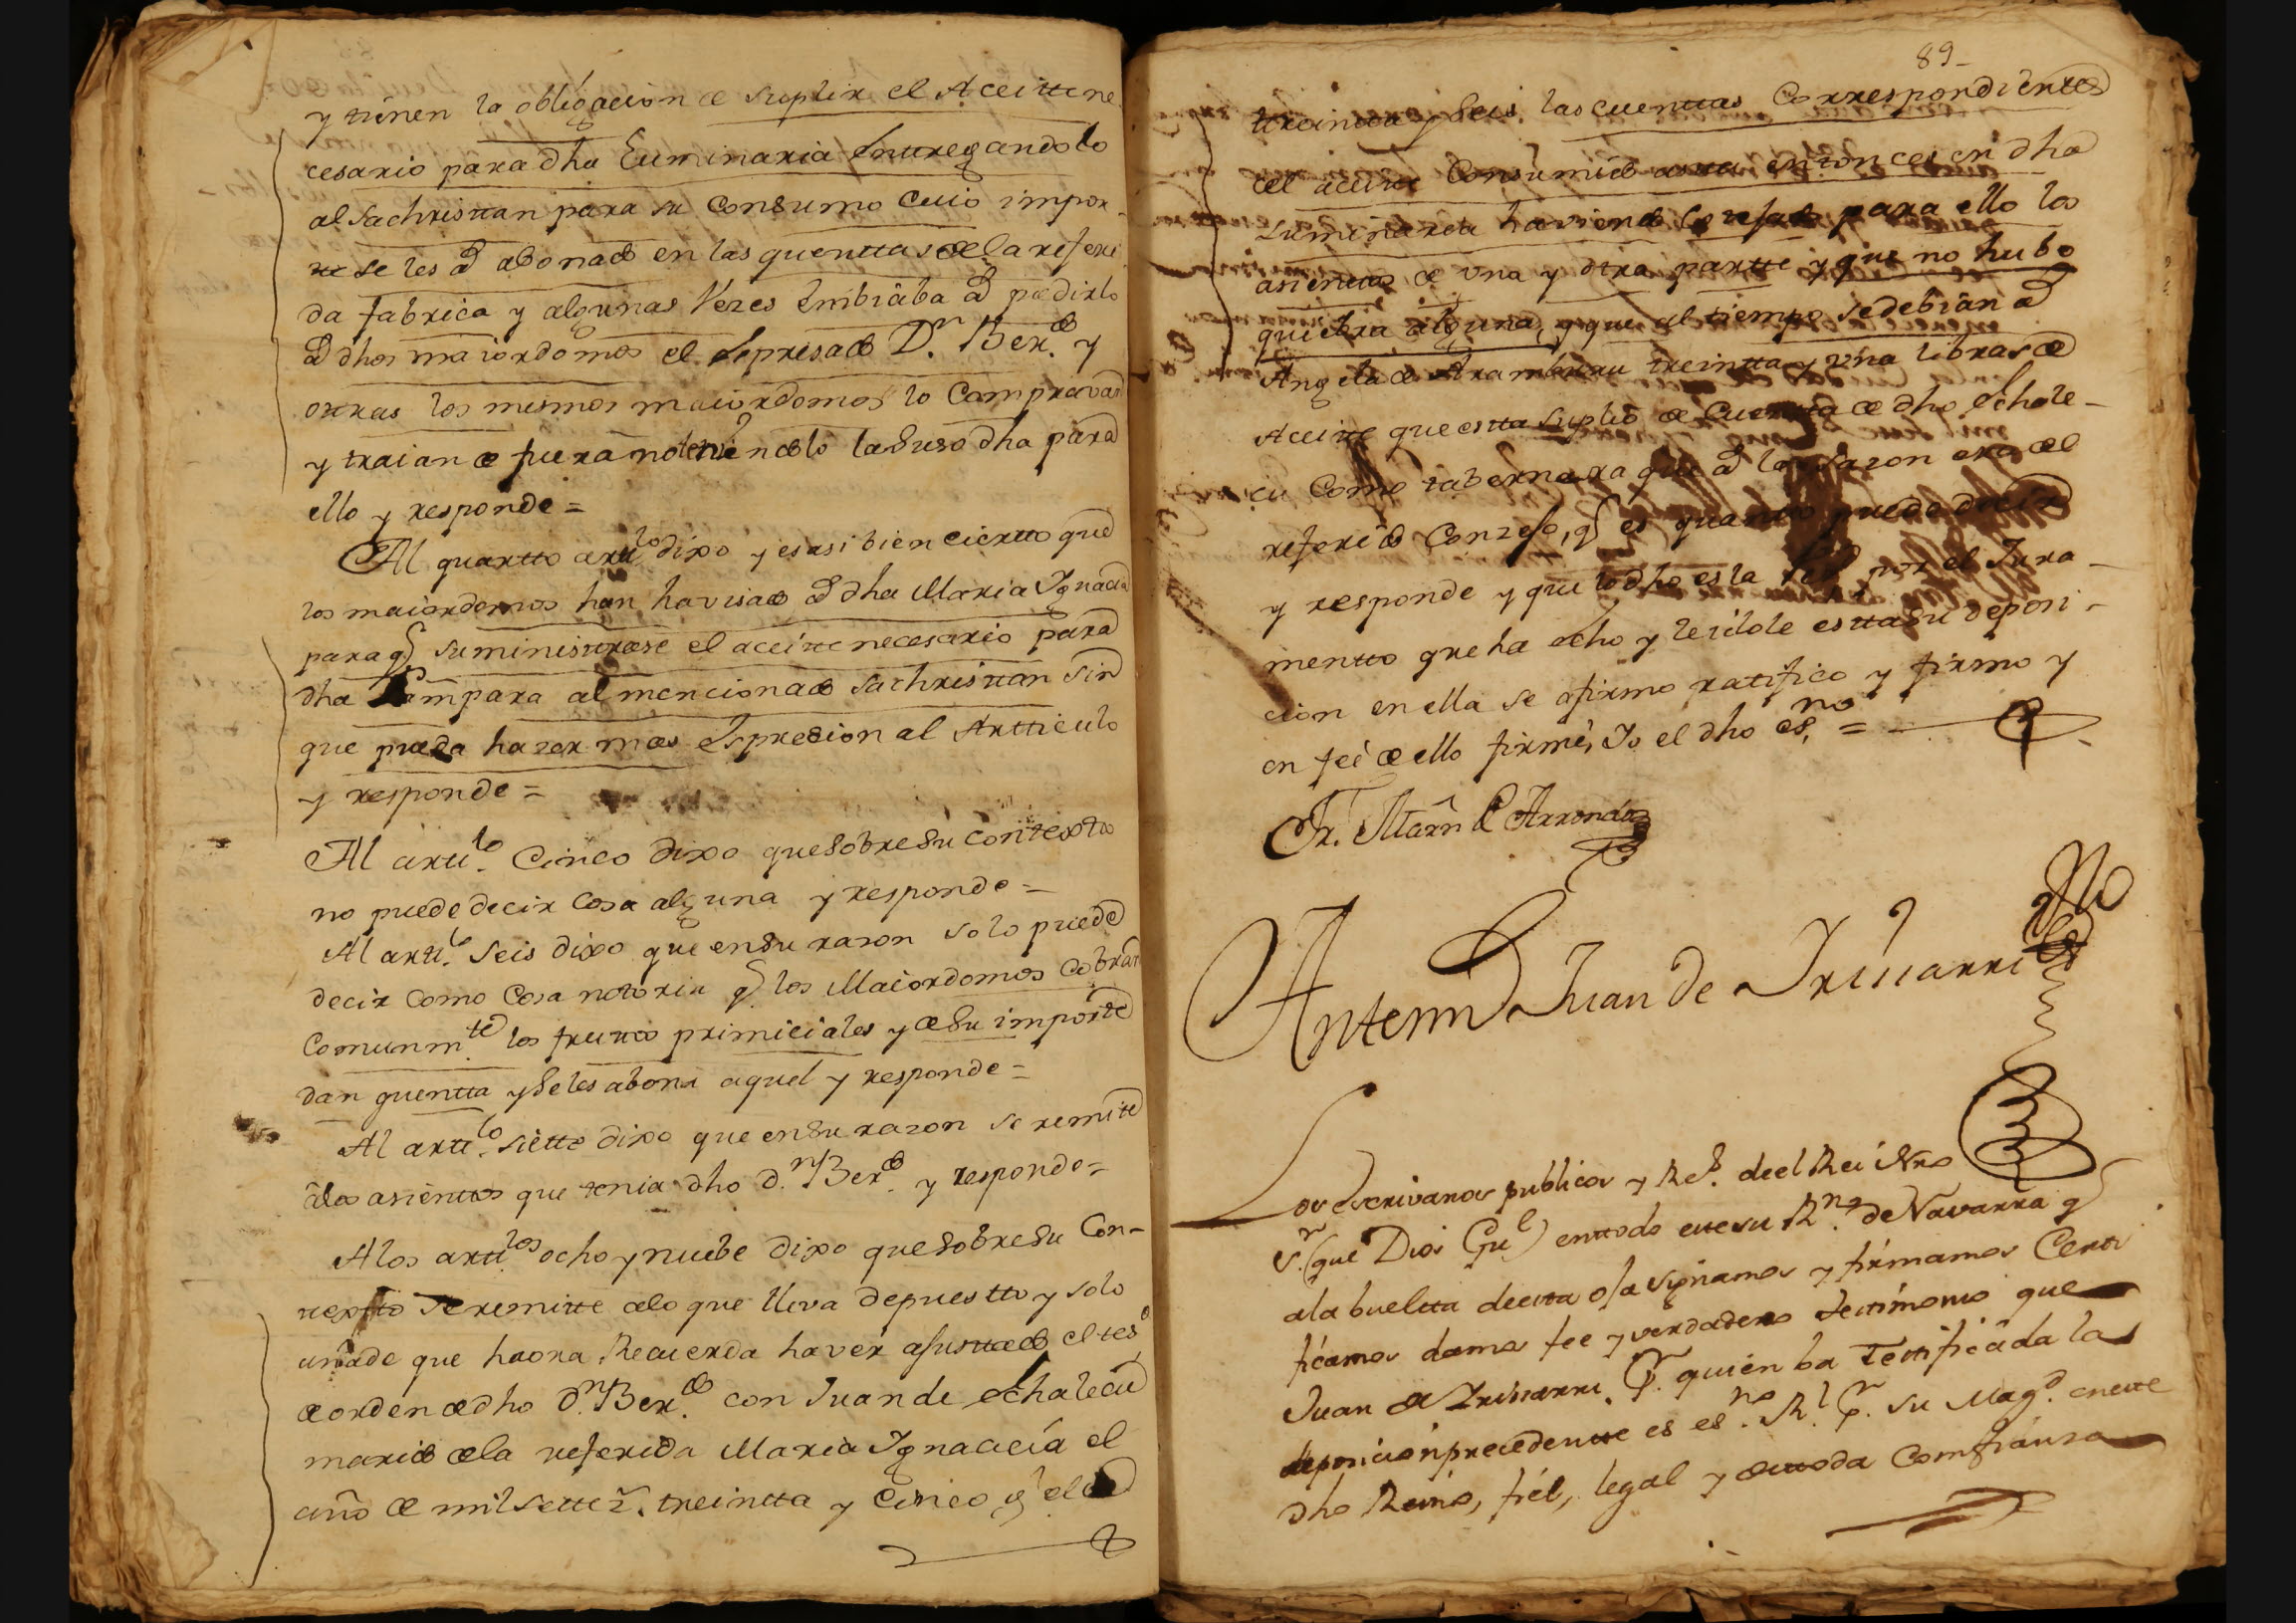 y tienen la obligacion de suplir el Aceitte ne
cesario para dha Luminaria Entregandolo
al Sachristtan para su Consumo cuio impor-
tte se les â abonado en las quenttas de la referi
da fabrica y algunas Vezes Embiâba â pedirlo
â dhos maiordomos el Espresado D.n Ber.do y
ottras los mesmos maiordomos lo Compravan
y traian de fuera no teniendolo la Suso dha para
ello y responde =
Al quartto artti.lo dixo y es asi bien ciertto que
los maiordomos han havisado â dha Maria Ygnacia
para q suministtrase el aceitte necesario para
dha Lampara al mencionado Sachristtan sin
que pueda hazer mas Espresion al Artticulo
y responde =
Al artti.lo Cinco dixo que sobre su Contextto
no puede decir Cosa alguna y responde =
Al artti.lo seis dixo que en su razon solo puede
decir Como Cosa notoria q los Maiordomos Cobran
Comunm.te los fruttos primiciales y de su importte
dan quentta y se les abona aquel y responde =
Al artti.lo siette dixo que en su razon se remitte
â los asienttos que tenia dho D.n Ber.do y responde =
A los artti.los ocho y nuebe dixo que sobre su Con-
textto se remitte a lo que lleva depuestto y solo
añade que haora Recuerda haver ajusttado el tes.o
de orden de dho D.n Ber.do con Juan de Echalecu
marido de la referida Maria Ygnacia el
año de mil settez.s treintta y Cinco q el de
89-
treintta y seis, las cuenttas Correspondientes
del aceitte Consumido astta entonces en dha
Luminaria haviendo Cotejado para ello los
asienttos de una y otra partte y que no hubo
quiebra alguna, y que al tiempo se debian â
Angela de Aramburu treintta y una libras de
Aceitte que estta suplio de Cuentta de dho Echale-
cu Como tabernera que â la sazon era del
referido Conzejo, q es quantto puede decir
y responde y que lo dho es la Ver.d por el Jura-
mentto que ha echo y leidole estta su deposi-
cion en ella se afirmo ratifico y firmo y
en feê de ello firmê, Yo el dho es.no =
Fr. Martn de Arrondo
Antemi Juan de Yrisarri
Los Escrivanos publicos y R.s de el Rei Nro
S.r (que Dios Gue) en ttodo estte su R.no de Navarra q
a la bueltta de estta oja signamos y firmamos Certi
ficamos damos fee y verdadero testtimonio que
Juan de Yrisarri, P.r quien ba Testtificâda la
deposicion precedentte es es.no R.l P.r su Mag.d en estte
dho Reino, fiel, legal y de ttoda Comfianza